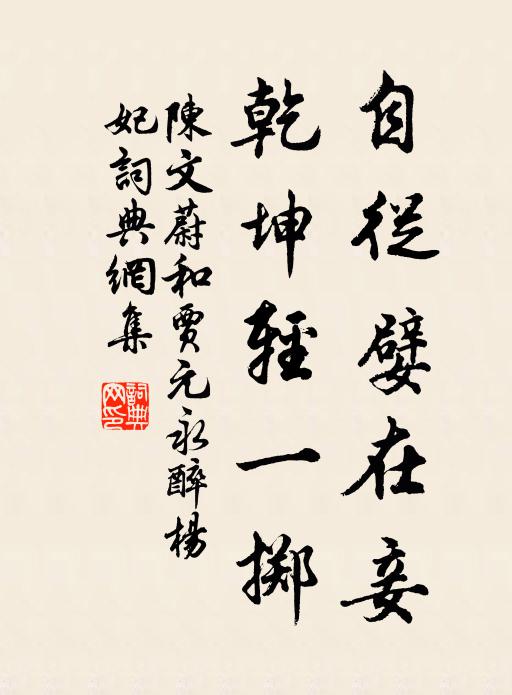 自從嬖在妾
乾坤輕一擲
陳文蔚和賈元永醉楊
妃詞典網集
詞典網印